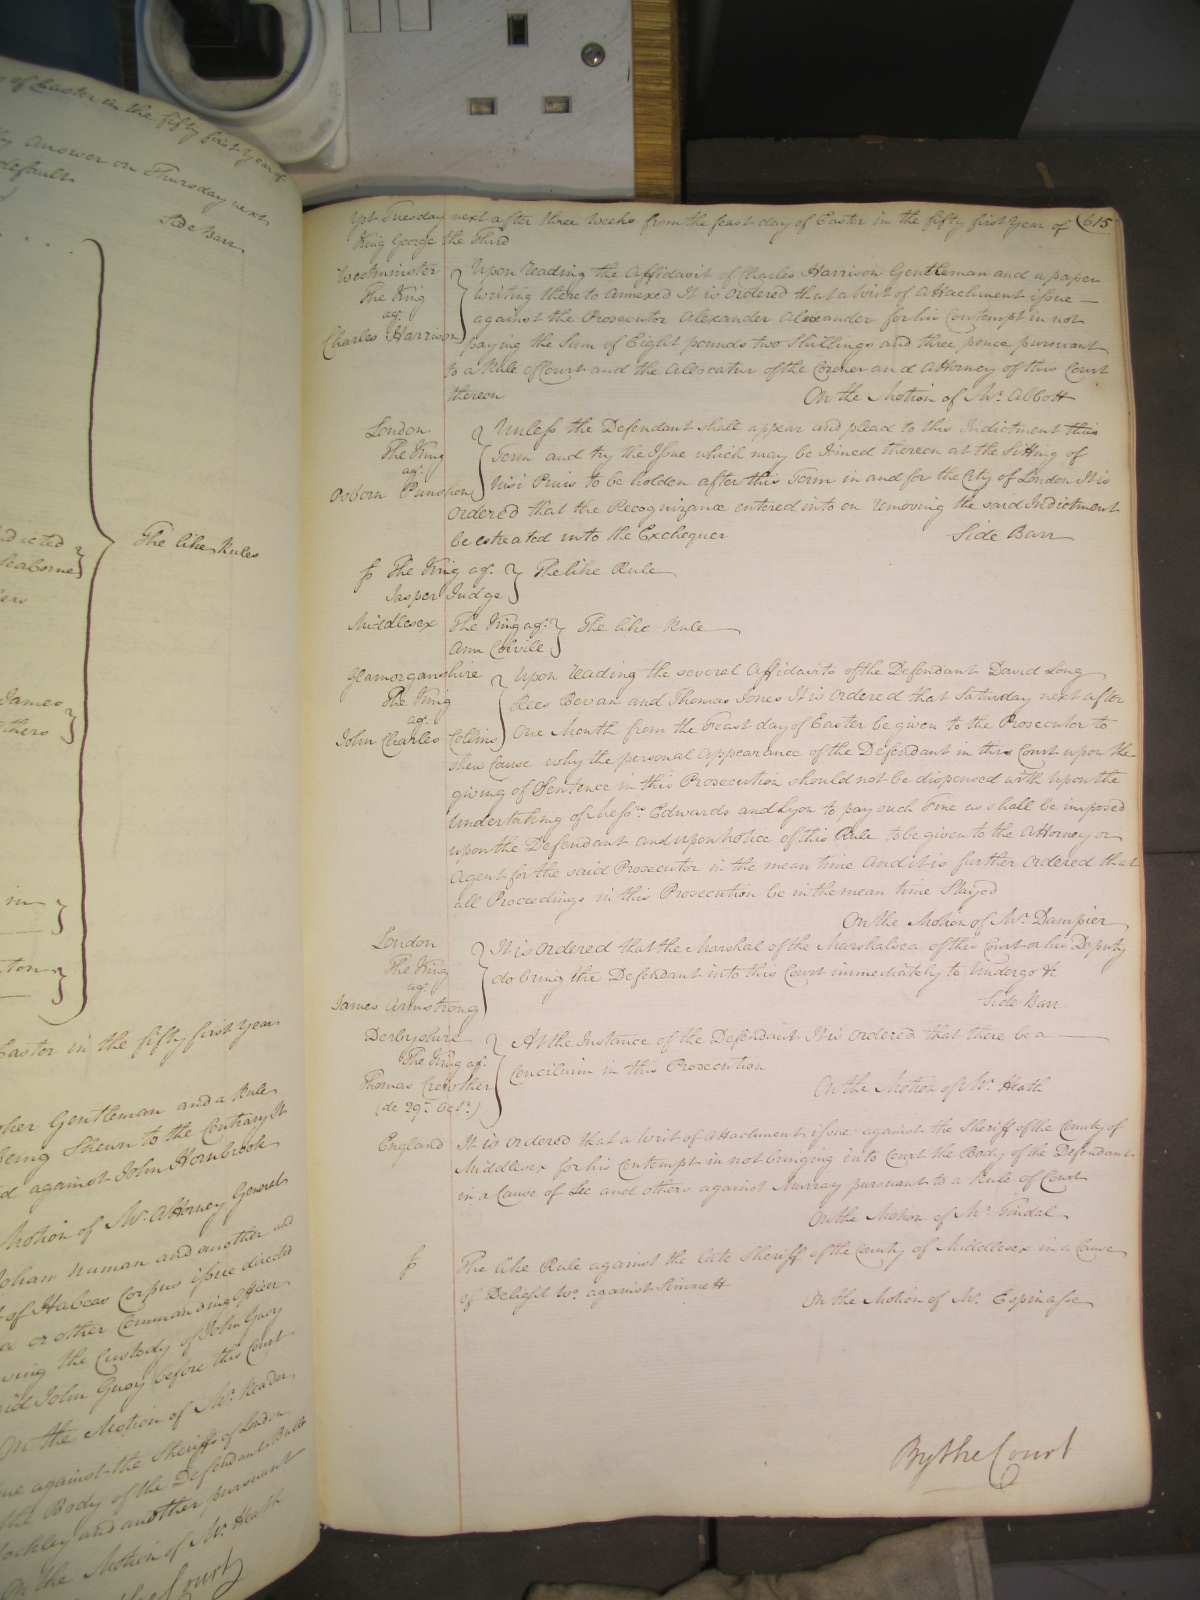 of Easter in the fifty first Year of
Answer on Thursday next
default
Side Barr
The like Rules
James
thers
in
ton
Easter in the fifty first Year
Gentleman and a Rule
being Shewn to the Contrary It
against John Hornbrook
Motion of Mr. Attorney General
and another and
of Habeas Corpus issue directed
or other Commanding Officer
the Custody of John Guoy
said John Guoy before this Court
On the Motion of Mr. Reader
against the Sheriffs of London
the Body of the Defendant
and another pursuant
On the Motion of Mr. Heath
the Court
Yet Tuesday next after three Weeks from the feast day of Easter in the fifty first Year of 615
King George the Third
Westminster Upon reading the Affidavit of Charles Harrison Gentleman and a paper
The King writing thereto annexed It is ordered that a Writ of Attachment issue
agt. against the Prosecutor Alexander Alexander for his Contempt in not
Charles Harrison paying the Sum of Eight pounds two Shillings and three pence pursuant
to a Rule of Court and the Allocatur of the Coroner and Attorney of this Court
thereon On the Motion of Mr. Abbott
London Unless the Defendant shall appear and plead to this Indictment this
The King Term and try the Issue which may be Joined thereon at the Sitting of
agt. Nisi Prius to be holden after this Term in and for the City of London It is
Osborn Punshon ordered that the Recognizance entered into on removing the said Indictment
be estreated into the Exchequer Side Barr
The King agt. The like Rule
Jasper Judge
Middlesex The King agt. The like Rule
Ann Colvile
Glamorganshire Upon reading the several Affidavits of the Defendant David Long
The King Rees Bevan and Thomas Jones It is ordered that Saturday next after
agt. One Month from the Feast day of Easter be given to the Prosecutor to
John Charles Collins shew Cause why the personal Appearance of the Defendant in this Court upon the
giving of Sentence in this Prosecution should not be dispensed with upon the
Undertaking of Messrs. Edwards and Lyon to pay such Fine as shall be imposed
upon the Defendant and upon Notice of this Rule to be given to the Attorney or
Agent for the said Prosecutor in the mean time And it is further ordered that
all Proceedings in this Prosecution be in the mean time Stayed
On the Motion of Mr. Dampier
London It is ordered that the Marshal of the Marshalsea of this Court or his Deputy
The King do bring the Defendant into this Court immediately to undergo &c
agt.
James Armstrong Side Barr
Derbyshire At the Instance of the Defendant It is ordered that there be a
The King agt. Concilium in this Prosecution
Thomas Crowther On the Motion of Mr. Heath
(de 29t. Oct.)
England It is ordered that a Writ of Attachment issue against the Sheriff of the County of
Middlesex for his Contempt in not bringing into Court the Body of the Defendant
in a Cause of Lee and others against Murray pursuant to a Rule of Court
On the Motion of Mr. Tindal
The like Rule against the late Sheriff of the County of Middlesex in a Cause
of Delight Wo. against Sinnett
On the Motion of Mr. Espinasse
By the Court